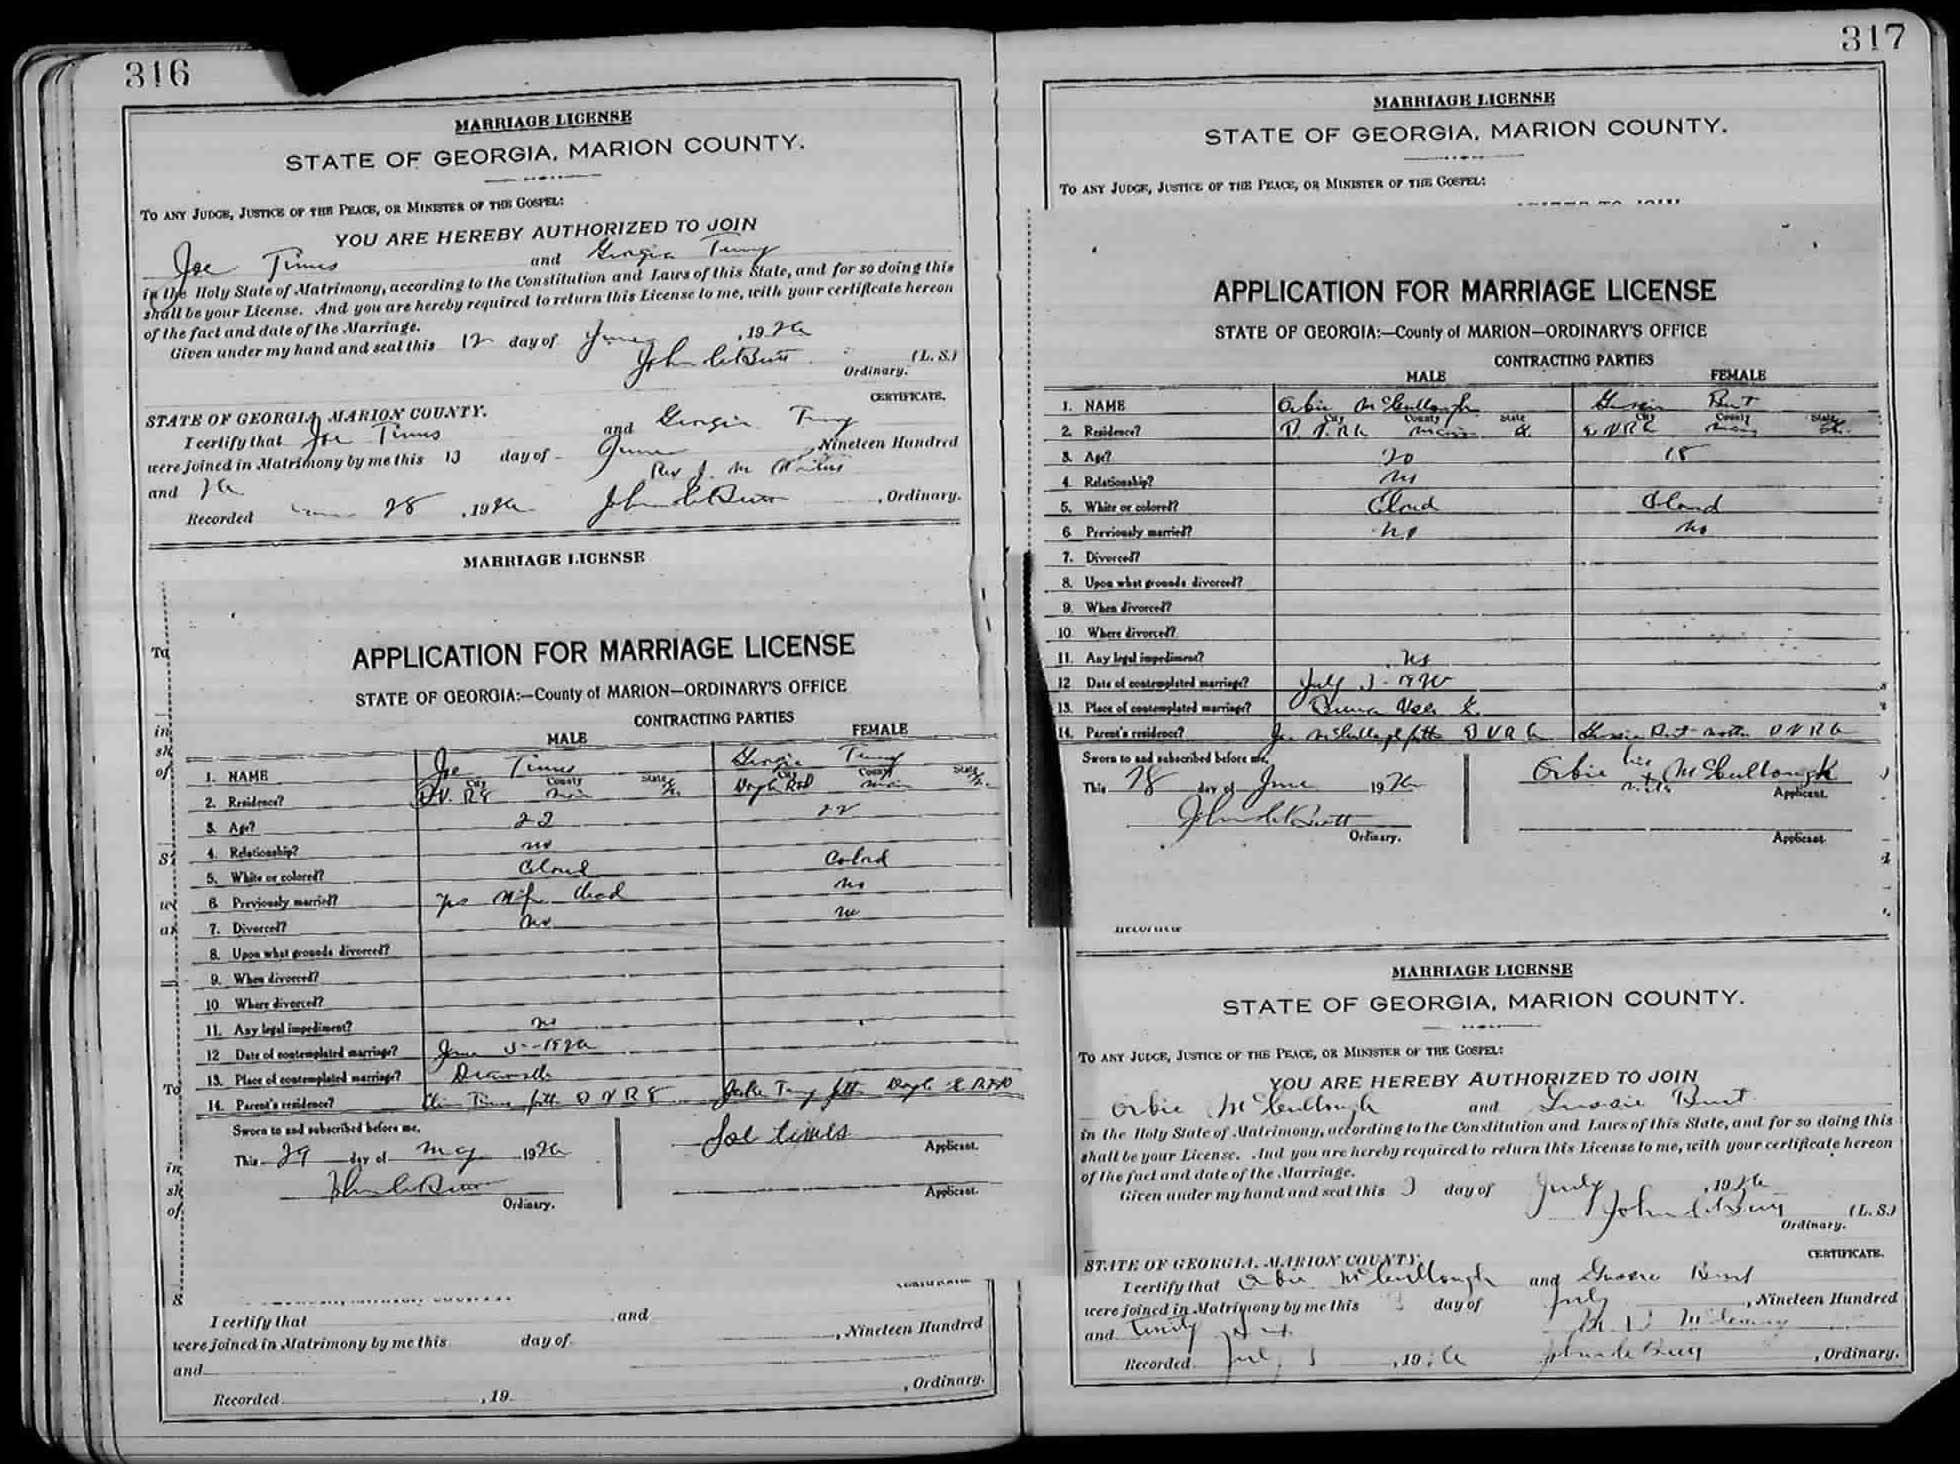 316
MARRIAGE LICENSE
STATE OF GEORGIA, MARION COUNTY.
TO ANY JUDGE, JUSTICE OF THE PEACE, OR MINISTER OF THE GOSPEL:
YOU ARE HEREBY AUTHORIZED TO JOIN
Joe Times and Georgia
in the Holy State of Matrimony, according to the Constitution and Laws of this State, and for so doing this
shall be your License. And you are hereby required to return this License to me, with your certificate hereon
of the fact and date of the Marriage.
Given under my hand and seal this 12 day of June, 1926
John C Butt (L. S.)
Ordinary.
CERTIFICATE.
STATE OF GEORGIA, MARION COUNTY.
I certify that Joe Times and Georgia
were joined in Matrimony by me this 13 day of June, Nineteen Hundred
and 26 Rev J. M.
Recorded 28, 1926 John C Butt, Ordinary.
MARRIAGE LICENSE
To
APPLICATION FOR MARRIAGE LICENSE
STATE OF GEORGIA:—County of MARION—ORDINARY'S OFFICE
CONTRACTING PARTIES
MALE FEMALE
1. NAME Joe Times Georgia
2. Residence? City County State City County State
3. Age? 22 22
4. Relationship? no
5. White or colored? Colord Colord
6. Previously married? yes wife dead no
7. Divorced? no no
8. Upon what grounds divorced?
9. When divorced?
10 Where divorced?
11. Any legal impediment? no
12 Date of contemplated marriage? June 5-1926
13. Place of contemplated marriage?
14. Parent's residence? Times D V R 8
Sworn to and subscribed before me,
This 29 day of May 1926 Joe times Applicant.
John C Butt
Ordinary. Applicant.
I certify that and
were joined in Matrimony by me this day of , Nineteen Hundred
and
Recorded , 19 , Ordinary.
317
MARRIAGE LICENSE
STATE OF GEORGIA, MARION COUNTY.
TO ANY JUDGE, JUSTICE OF THE PEACE, OR MINISTER OF THE GOSPEL:
APPLICATION FOR MARRIAGE LICENSE
STATE OF GEORGIA:—County of MARION—ORDINARY'S OFFICE
CONTRACTING PARTIES
MALE FEMALE
1. NAME Orbie McCullough Gussie Burt
2. Residence? City County State City County State
3. Age? 20 18
4. Relationship? no
5. White or colored? Colord Colord
6 Previously married? no no
7. Divorced?
8. Upon what grounds divorced?
9. When divorced?
10 Where divorced?
11. Any legal impediment? no
12 Date of contemplated marriage? July 3-1926
13. Place of contemplated marriage? Buena Vista
14. Parent's residence?
Sworn to and subscribed before me,
This 28 day of June 1926 Orbie his x McCullough Applicant.
John C Butt
Ordinary. Applicant.
MARRIAGE LICENSE
STATE OF GEORGIA, MARION COUNTY.
TO ANY JUDGE, JUSTICE OF THE PEACE, OR MINISTER OF THE GOSPEL:
YOU ARE HEREBY AUTHORIZED TO JOIN
Orbie McCullough and Gussie Burt
in the Holy State of Matrimony, according to the Constitution and Laws of this State, and for so doing this
shall be your License. And you are hereby required to return this License to me, with your certificate hereon
of the fact and date of the Marriage.
Given under my hand and seal this 3 day of July, 1926
John C Butt (L. S.)
Ordinary.
CERTIFICATE.
STATE OF GEORGIA, MARION COUNTY.
I certify that Orbie McCullough and Gussie Burt
were joined in Matrimony by me this 3 day of July, Nineteen Hundred
and
Recorded July, 1926 John C Butt, Ordinary.